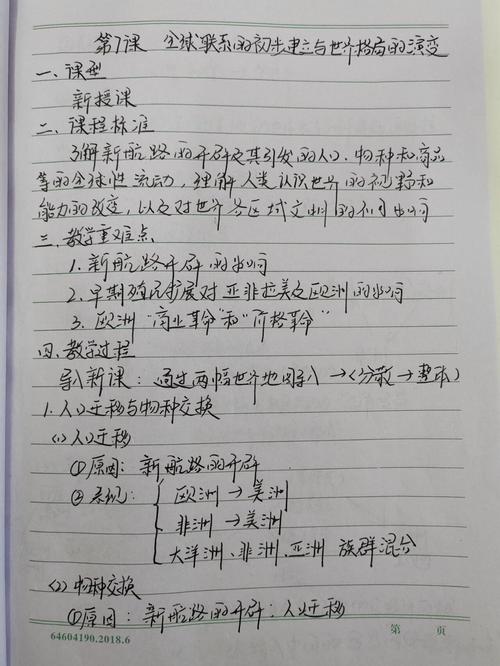 第7课 全球联系的初步建立与世界格局的演变
一、课型
新授课
二、课程标准
了解新航路的开辟及其引发的人口、物种和商品
等的全球性流动，理解人类认识世界的视野和
能力的改变，以及对世界各区域文明的不同影响
三、教学重难点
1. 新航路开辟的影响
2. 早期殖民扩展对亚非拉美及欧洲的影响
3. 欧洲“商业革命”和“价格革命”
四、教学过程
导入新课：通过两幅世界地图导入→（分散→整体）
1. 人口迁移与物种交换
(1) 人口迁移
①原因：新航路的开辟
②表现：欧洲→美洲
非洲→美洲
大洋洲、非洲、亚洲 族群混合
(2) 物种交换
①原因：新航路的开辟；人口迁移
64604190.2018.6
第 页